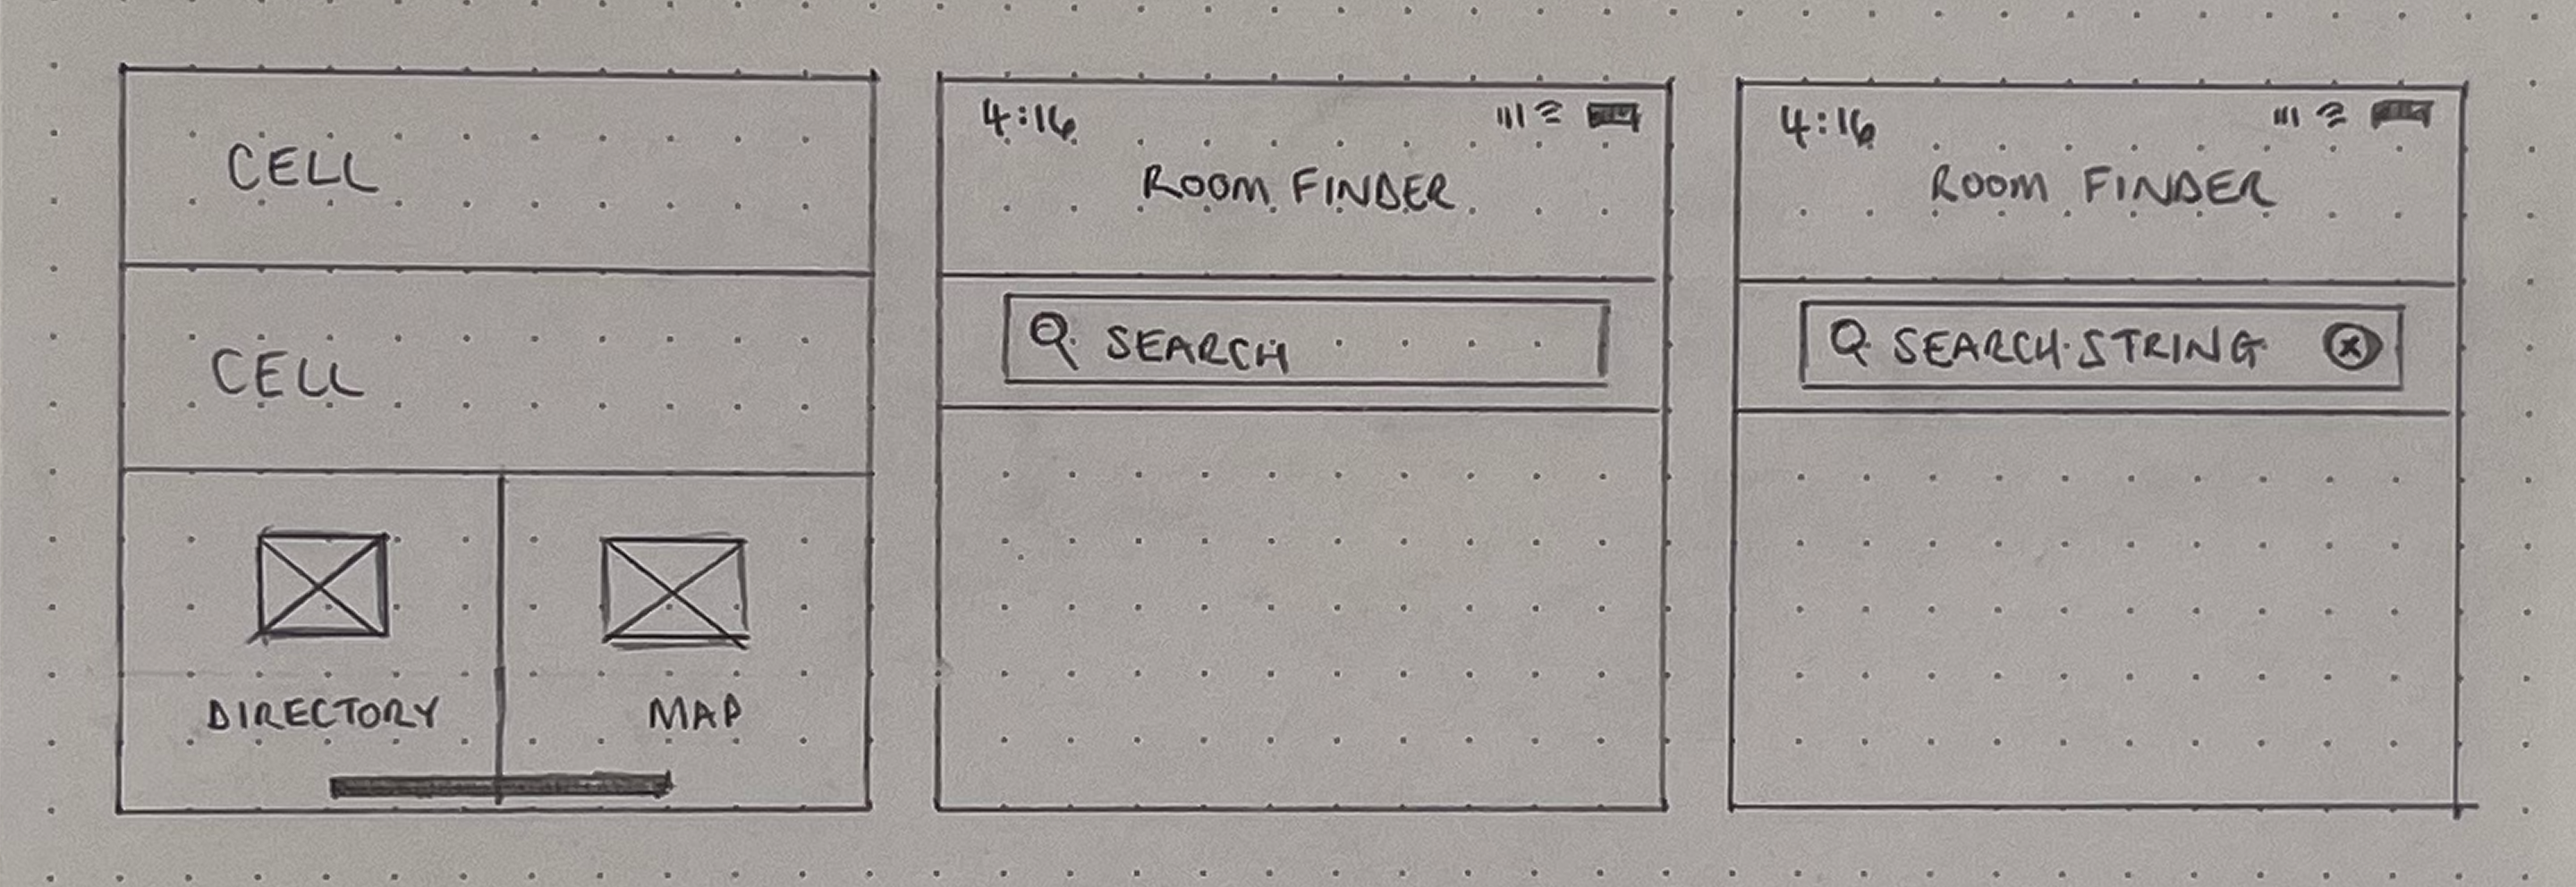 CELL
CELL
DIRECTORY
MAP
4:16
ROOM FINDER
SEARCH
4:16
ROOM FINDER
SEARCH STRING